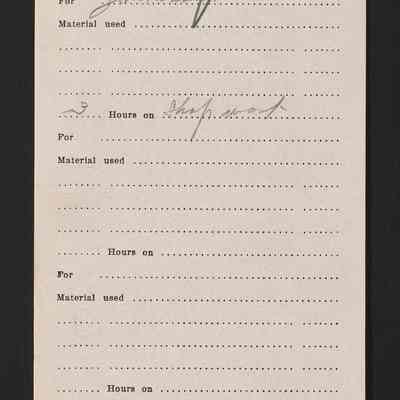 For
Material used
3 Hours on Shop work
For
Material used
Hours on
For
Material used
Hours on